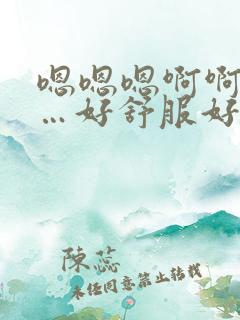 嗯嗯嗯啊啊
…好舒服好
陳蕊
未经同意禁止转载